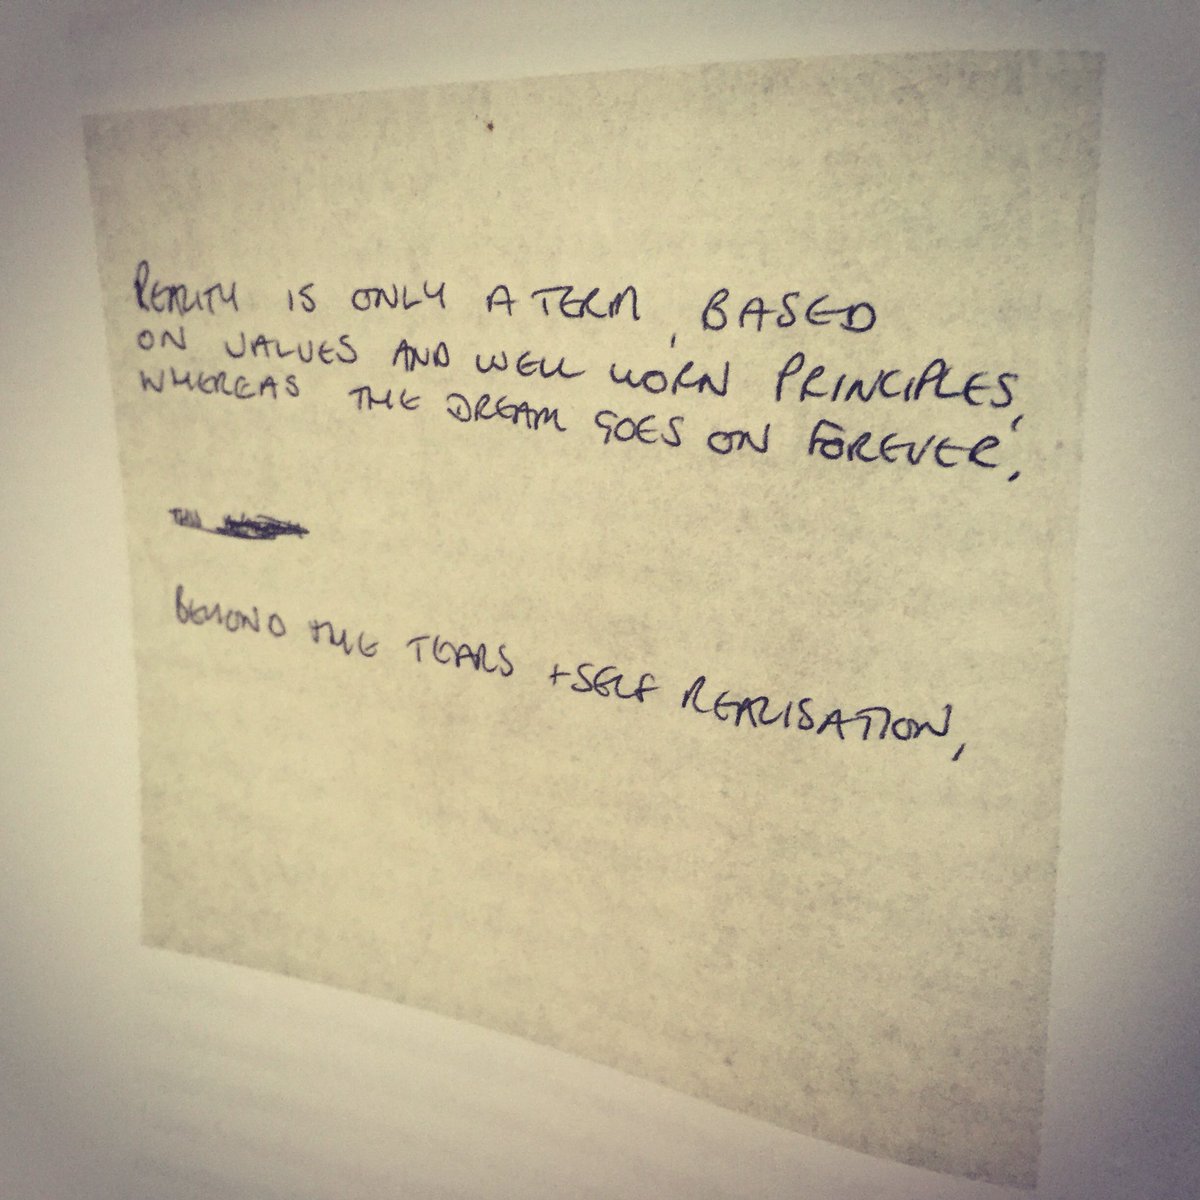 REALITY IS ONLY A TERM, BASED
ON VALUES AND WELL WORN PRINCIPLES,
WHEREAS THE DREAM GOES ON FOREVER.
BEYOND THE TEARS + SELF REALISATION,